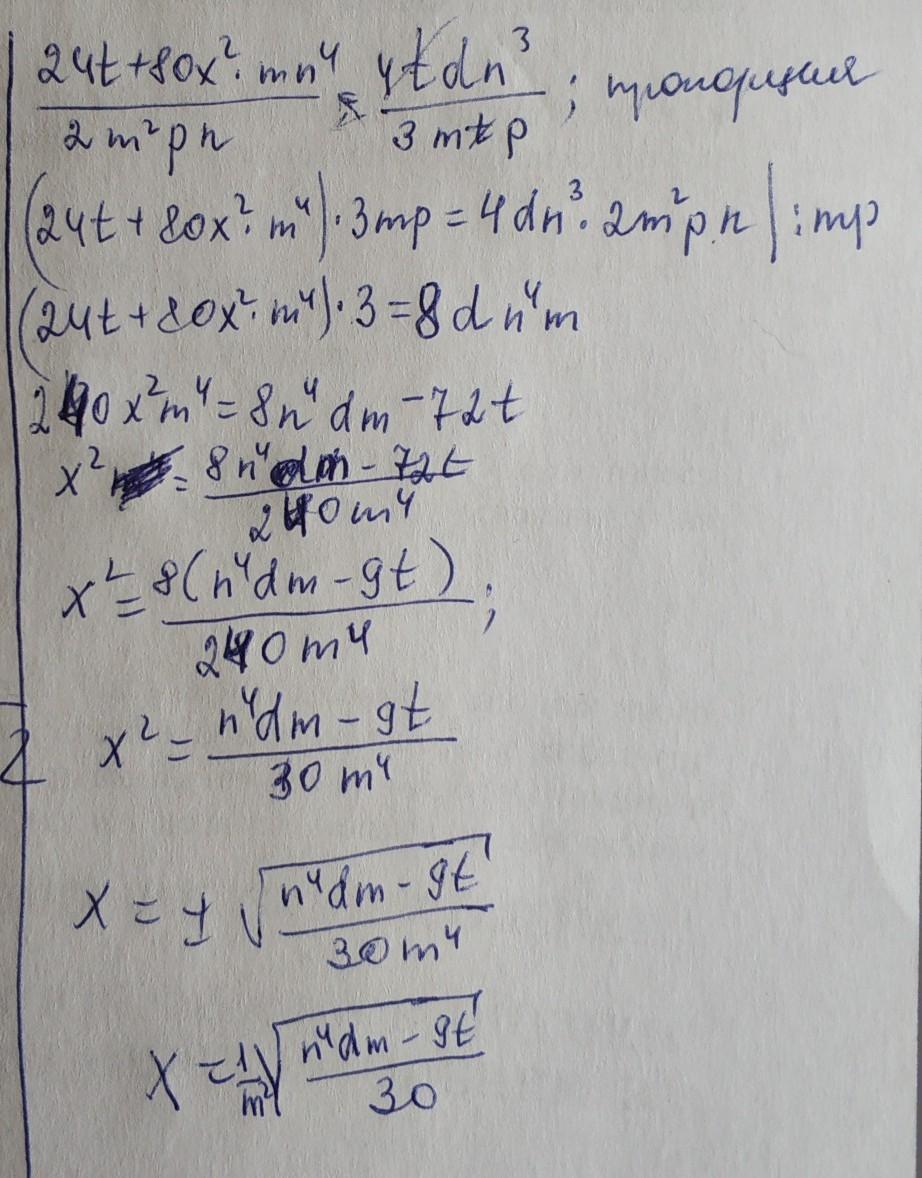 (24t+80x²·mn⁴)/(2m²pn) = (4tdn³)/(3mtp); пропорция
(24t+80x²·m⁴)·3mp=4dn³·2m²pn |:mp
(24t+80x²·m⁴)·3=8dn⁴m
240x²m⁴=8n⁴dm-72t
x²=(8n⁴dm-72t)/(240m⁴)
x²=8(n⁴dm-9t)/(240m⁴);
2
x²=(n⁴dm-9t)/(30m⁴)
x=±√((n⁴dm-9t)/(30m⁴))
x=1/m²√((n⁴dm-9t)/30)